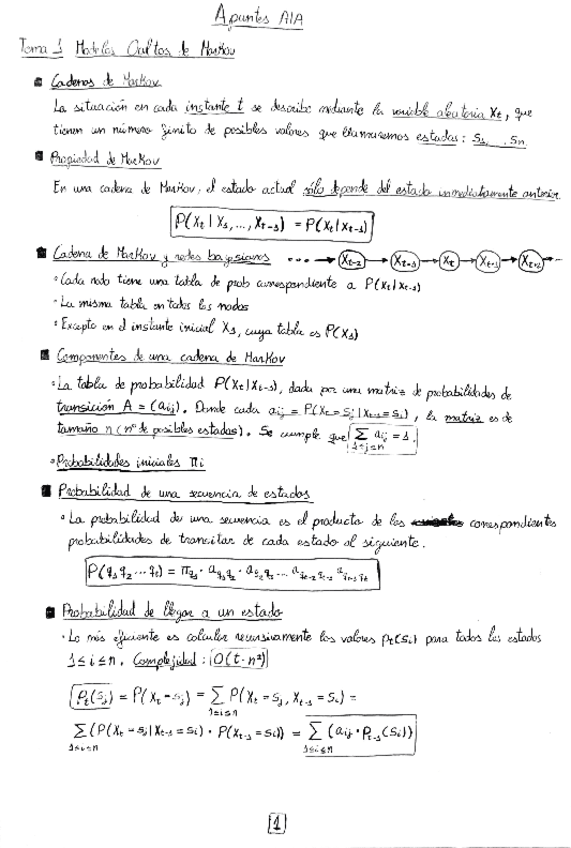 Apuntes AIA
Tema 1 Modelos Ocultos de Markov
Cadenas de Markov
La situación en cada instante t se describe mediante la variable aleatoria Xt, que
tienen un número finito de posibles valores que llamaremos estados: S1, .. Sn
Propiedad de Markov
En una cadena de Markov, el estado actual sólo depende del estado inmediatamente anterior.
P(Xt | X1, ..., Xt-1) = P(Xt | Xt-1)
Cadena de Markov y redes bayesianas ... → Xt-2 → Xt-1 → Xt → Xt+1 → Xt+2 ...
• Cada nodo tiene una tabla de prob correspondiente a P(Xt | Xt-1)
• La misma tabla en todos los nodos
• Excepto en el instante inicial X1, cuya tabla es P(X1)
Componentes de una cadena de Markov
• La tabla de probabilidad P(Xt | Xt-1), dada por una matriz de probabilidades de
transición A = (aij). Donde cada aij = P(Xt = Sj | Xt-1 = Si), la matriz es de
tamaño n (nº de posibles estados). Se cumple que ∑ aij = 1.
1≤j≤n
• Probabilidades iniciales πi
Probabilidad de una secuencia de estados
• La probabilidad de una secuencia es el producto de las correspondientes
probabilidades de transitar de cada estado al siguiente.
P(q1 q2 ... qt) = πq1 · aq1q2 · aq2q3 ... aqt-2qt-1 · aqt-1qt
Probabilidad de llegar a un estado
• Lo más eficiente es calcular recursivamente los valores Pt(Si) para todos los estados
1≤i≤n. Complejidad: O(t·n²)
Pt(Sj) = P(Xt = Sj) = ∑ P(Xt = Sj, Xt-1 = Si) =
1≤i≤n
∑ (P(Xt = Sj | Xt-1 = Si) · P(Xt-1 = Si)) = ∑ (aij · Pt-1(Si))
1≤i≤n 1≤i≤n
1